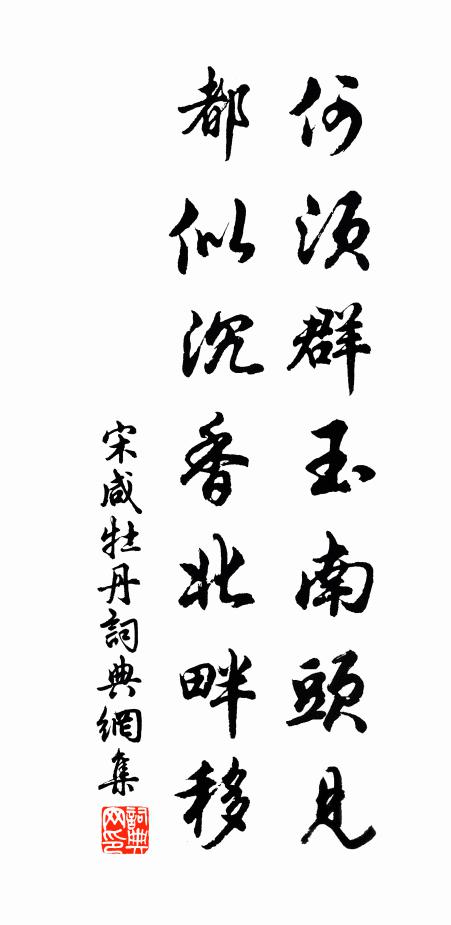 何須群玉南頭見
都似沉香北畔移
宋咸牡丹詞典網集
詞典网印